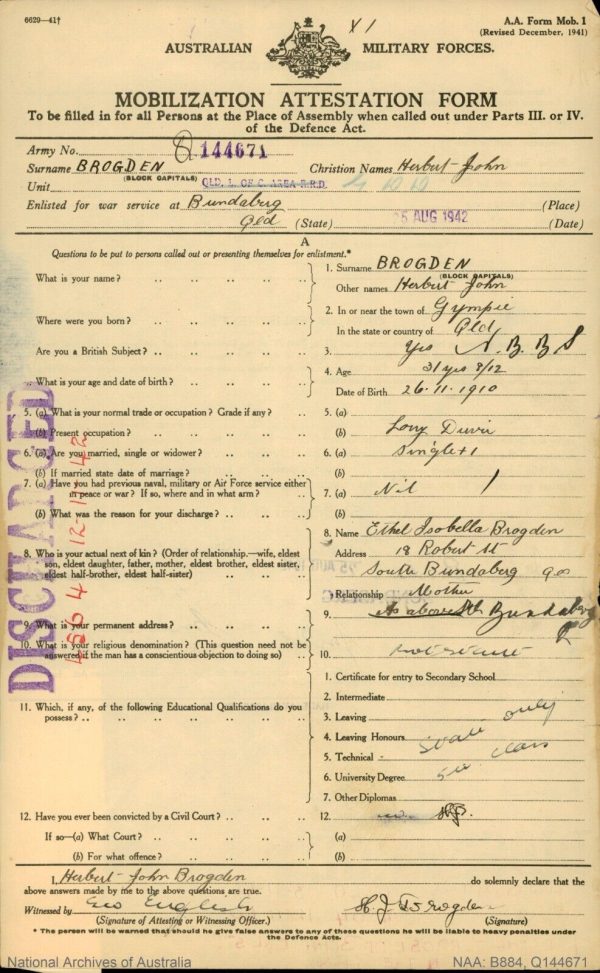 6629—41†
A.A. Form Mob. 1
(Revised December, 1941)
X1
AUSTRALIAN MILITARY FORCES.
MOBILIZATION ATTESTATION FORM
To be filled in for all Persons at the Place of Assembly when called out under Parts III. or IV.
of the Defence Act.
Army No. Q144671
Surname BROGDEN Christian Names Herbert John
(BLOCK CAPITALS)
Unit QLD. L. OF C. AREA
Enlisted for war service at Bundaberg (Place)
Qld (State) AUG 1942 (Date)
A
Questions to be put to persons called out or presenting themselves for enlistment.*
What is your name? 1. Surname BROGDEN
(BLOCK CAPITALS)
Other names Herbert John
Where were you born? 2. In or near the town of Gympie
In the state or country of Qld
Are you a British Subject? 3. Yes N.B.B.S
What is your age and date of birth? 4. Age 31 yrs 8/12
Date of Birth 26.11.1910
5. (a) What is your normal trade or occupation? Grade if any? 5. (a)
(b) Present occupation? (b) Lorry Driver
6. (a) Are you married, single or widower? 6. (a) Single
(b) If married state date of marriage? (b)
7. (a) Have you had previous naval, military or Air Force service either
in peace or war? If so, where and in what arm? 7. (a) Nil
(b) What was the reason for your discharge? (b)
8. Who is your actual next of kin? (Order of relationship.—wife, eldest
son, eldest daughter, father, mother, eldest brother, eldest sister,
eldest half-brother, eldest half-sister)
8. Name Ethel Isobella Brogden
Address 18 Robert St
South Bundaberg
Relationship Mother
9. What is your permanent address? 9. As above Bundaberg
10. What is your religious denomination? (This question need not be
answered if the man has a conscientious objection to doing so) 10.
11. Which, if any, of the following Educational Qualifications do you
possess?
1. Certificate for entry to Secondary School
2. Intermediate
3. Leaving
4. Leaving Honours
5. Technical
6. University Degree
7. Other Diplomas
State only
class
12. Have you ever been convicted by a Civil Court? 12. no. HJB.
If so—(a) What Court? (a)
(b) For what offence? (b)
I, Herbert John Brogden do solemnly declare that the
above answers made by me to the above questions are true.
Witnessed by Geo English H. J. Brogden
(Signature of Attesting or Witnessing Officer.) (Signature)
* The person will be warned that should he give false answers to any of these questions he will be liable to heavy penalties under
the Defence Act.
DISCHARGED
National Archives of Australia
NAA: B884, Q144671